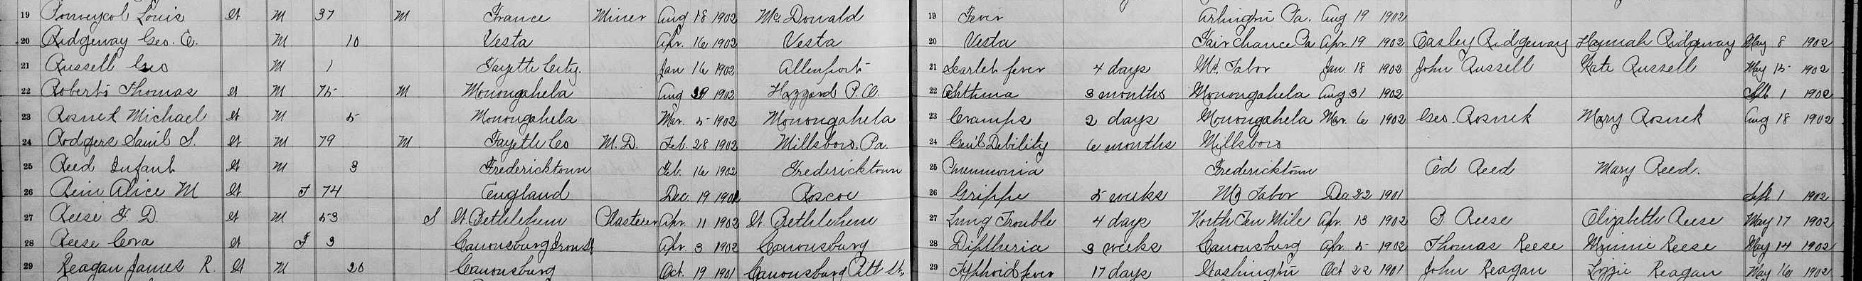 19 Louis W M 37 M France Miner Aug 18 1902 McDonald 19 Fever Arlington Pa. Aug 19 1902
20 Ridgeway Geo. E. M 10 Vesta Apr. 16 1902 Vesta 20 Vesta Fair Chance Pa Apr 19 1902 Easley Ridgeway Hannah Ridgeway May 8 1902
21 Russell Geo M 1 Fayette City. Jan 16 1902 Allenport 21 Scarlet fever 4 days Mt. Tabor Jan. 18 1902 John Russell Kate Russell May 15 1902
22 Roberts Thomas W M 75 M Monongahela Aug 1902 Hazzard P.O. 22 Asthma 3 months Monongahela Aug 31 1902 Sept 1 1902
23 Rosnek Michael W M 5 Monongahela Mar. 5 1902 Monongahela 23 Cramps 2 days Monongahela Mar. 6 1902 Geo. Rosnek Mary Rosnek Aug 18 1902
24 Rodgers Sam'l S. W M 79 M Fayette Co M.D. Feb 28 1902 Millsboro, Pa. 24 Gen'l Debility 6 months Millsboro
25 Reed Infant W M 3 Fredericktown Feb. 16 1902 Fredericktown 25 Pneumonia Fredericktown Ed Reed Mary Reed.
26 Alice M W F 74 England Dec 19 1901 Roscoe 26 Grippe 5 weeks Mt. Tabor Dec 22 1901 Sept 1 1902
27 Reese F D. W M 53 S W. Bethlehem Plasterer Apr. 11 1902 W Bethlehem 27 Lung Trouble 4 days North Ten Mile Apr. 13 1902 Reese Elizabeth Reese May 17 1902
28 Reese Cora W F 3 Canonsburg Apr. 3 1902 Canonsburg 28 Diptheria 3 weeks Canonsburg Apr. 5 1902 Thomas Reese Minnie Reese May 14 1902
29 Reagan James R. W M 20 Canonsburg Oct. 19 1901 Canonsburg 29 Typhoid fever 17 days Washington Oct 22 1901 John Reagan Lizzie Reagan May 16 1902